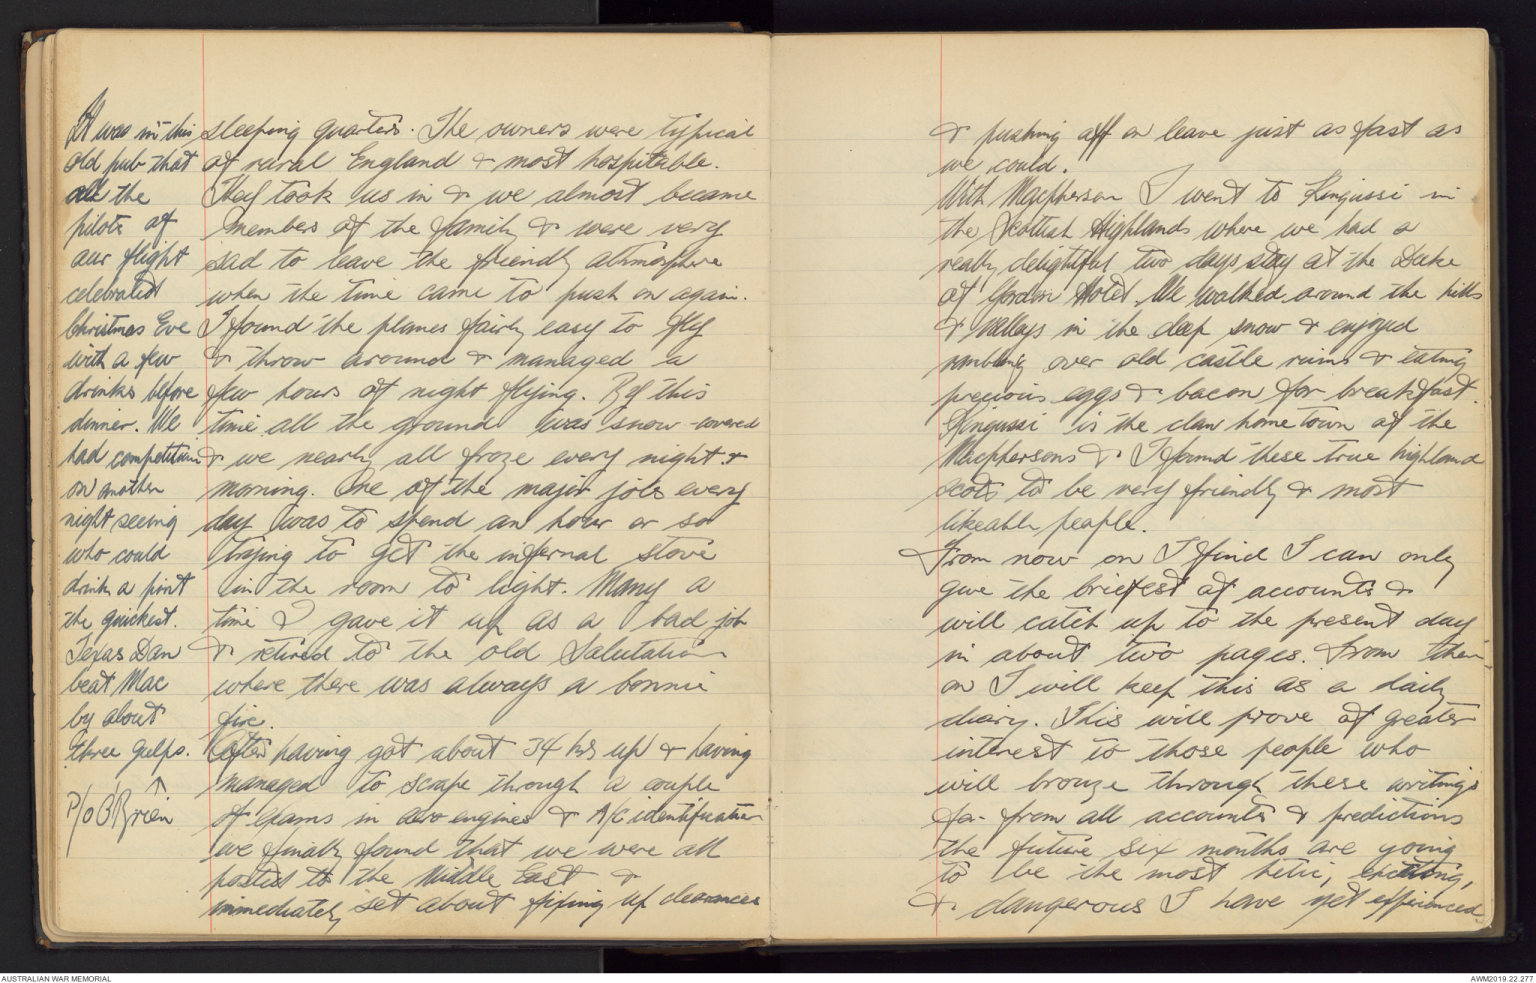 It was in this
old pub that
all the
pilots of
our flight
celebrated
Christmas Eve
with a few
drinks before
dinner. We
had competition
on another
night seeing
who could
drink a pint
the quickest.
Texas Dan
beat Mac
by about
three gulps.
P/O O'Brien
sleeping quarters. The owners were typical
of rural England & most hospitable.
They took us in & we almost became
members of the family & were very
sad to leave the friendly atmosphere
when the time came to push on again.
I found the planes fairly easy to fly
& throw around & managed a
few hours of night flying. By this
time all the ground was snow-covered
& we nearly all froze every night &
morning. One of the major jobs every
day was to spend an hour or so
trying to get the infernal stove
in the room to light. Many a
time I gave it up as a bad job
& retired to the old Salutation
where there was always a bonnie
fire.
After having got about 34 hrs up & having
managed to scrape through a couple
of exams in aero engines & A/C identification
we finally found that we were all
posted to the Middle East &
immediately set about fixing up clearances
& pushing off on leave just as fast as
we could.
With Macpherson I went to Kingussi in
the Scottish Highlands where we had a
really delightful two days stay at the Duke
of Gordon Hotel. We walked around the hills
& valleys in the deep snow & enjoyed
rambling over old castle ruins & eating
precious eggs & bacon for breakfast.
Kingussi is the clan home town of the
Macphersons & I found these true highland
scots to be very friendly & most
likeable people.
From now on I find I can only
give the briefest of accounts &
will catch up to the present day
in about two pages. From then-
on I will keep this as a daily
diary. This will prove of greater
interest to those people who
will browze through these writings
for from all accounts & predictions
the future six months are going
to be the most hetic, exciting,
& dangerous I have yet experienced.
AUSTRALIAN WAR MEMORIAL
AWM2019.22.277